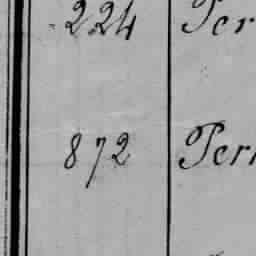 224 Per
872 Pern